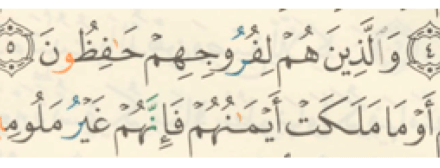 ٤ وَٱلَّذِينَ هُمْ لِفُرُوجِهِمْ حَٰفِظُونَ ٥
أَوْ مَا مَلَكَتْ أَيْمَٰنُهُمْ فَإِنَّهُمْ غَيْرُ